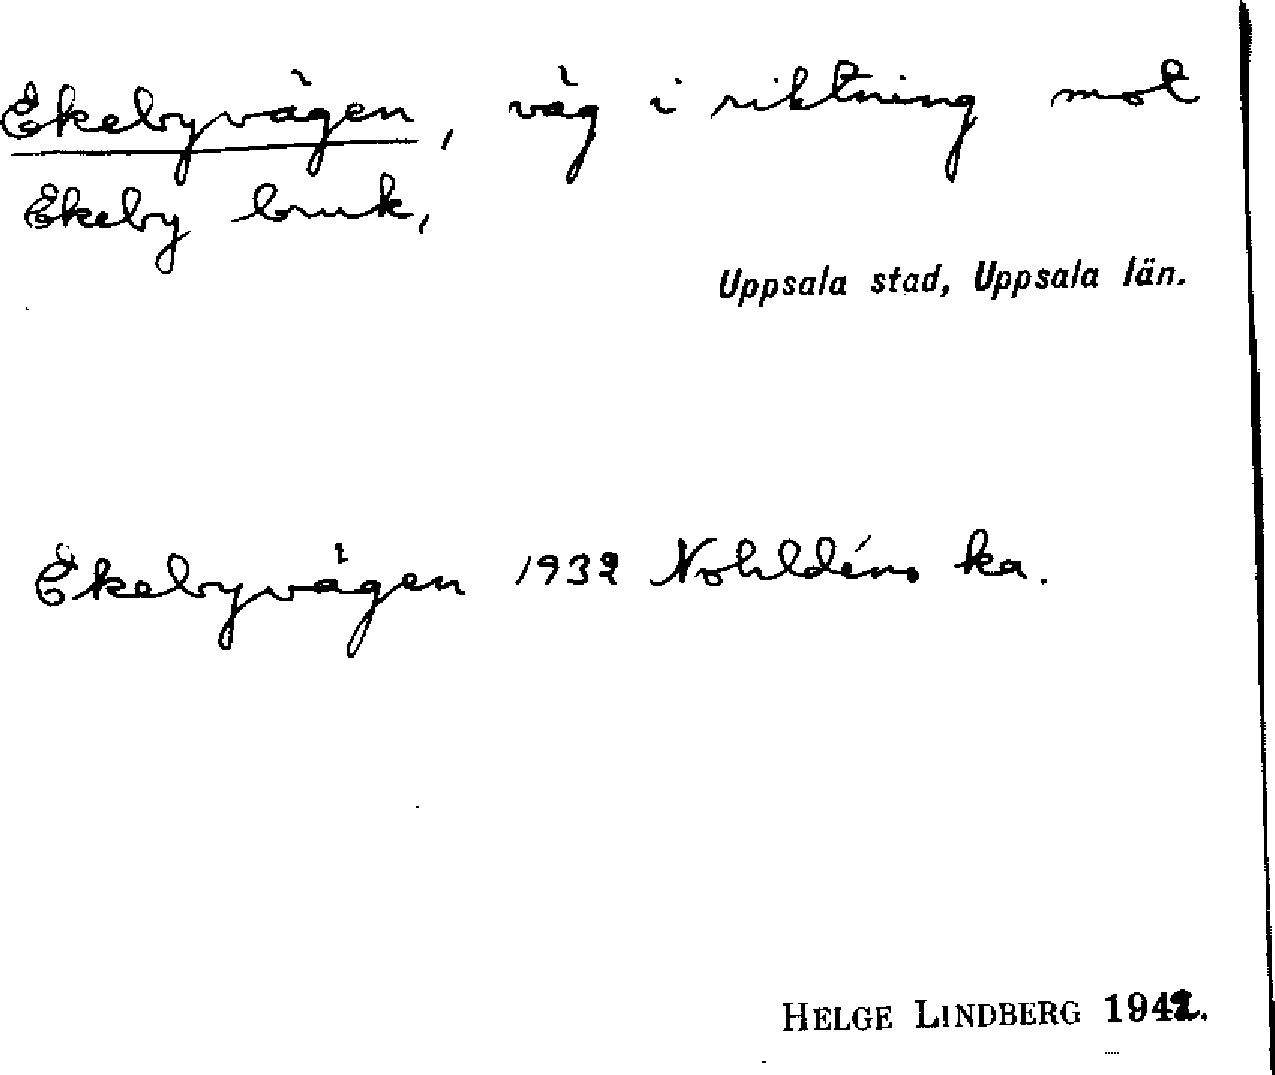 Ekebyvägen, väg i riktning mot
Ekeby bruk,
Uppsala stad, Uppsala län.
Ekebyvägen 1932 Nohldéns ka.
HELGE LINDBERG 1942.